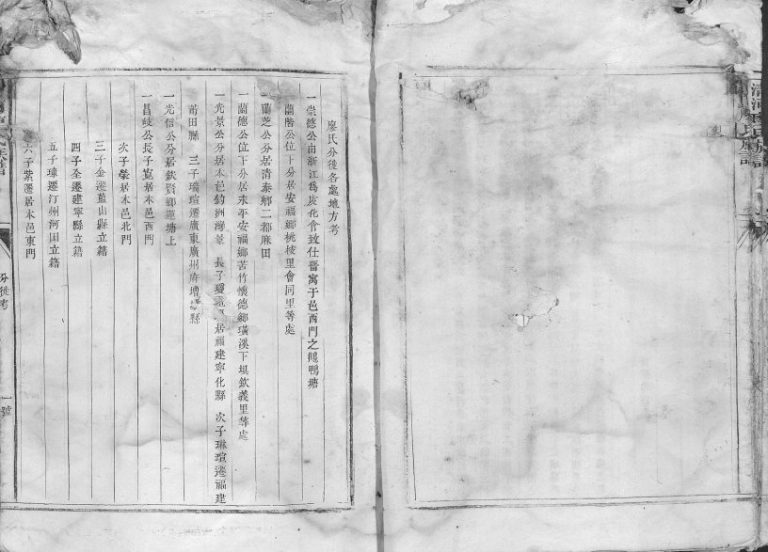 廖氏分徙各處地方考
一崇德公由浙江為長化會致仕晉寓于邑西門之隐鴨塘
蘭階公位下分居安福鄉桃棱里會同里等處
一蘭芝公分居清泰鄉二都麻田
一蘭德公位下分居永平安福鄉苦竹懷德鄉璜溪下垻欽義里等處
一光景公分居本邑釣洲灣景 長子 居福建寧化縣 次子琳瑄遷福建
莆田縣 三子璜瑄遷廣東廣州府 縣
一光信公分居欽賢鄉蓮塘上
一昌岐公長子寬居本邑西門
次子榮居本邑北門
三子金遷藍山縣立籍
四子全遷建寧縣立籍
五子璋遷汀州河田立籍
六子紫遷居本邑東門
分徙考
一號
清河廖氏族譜